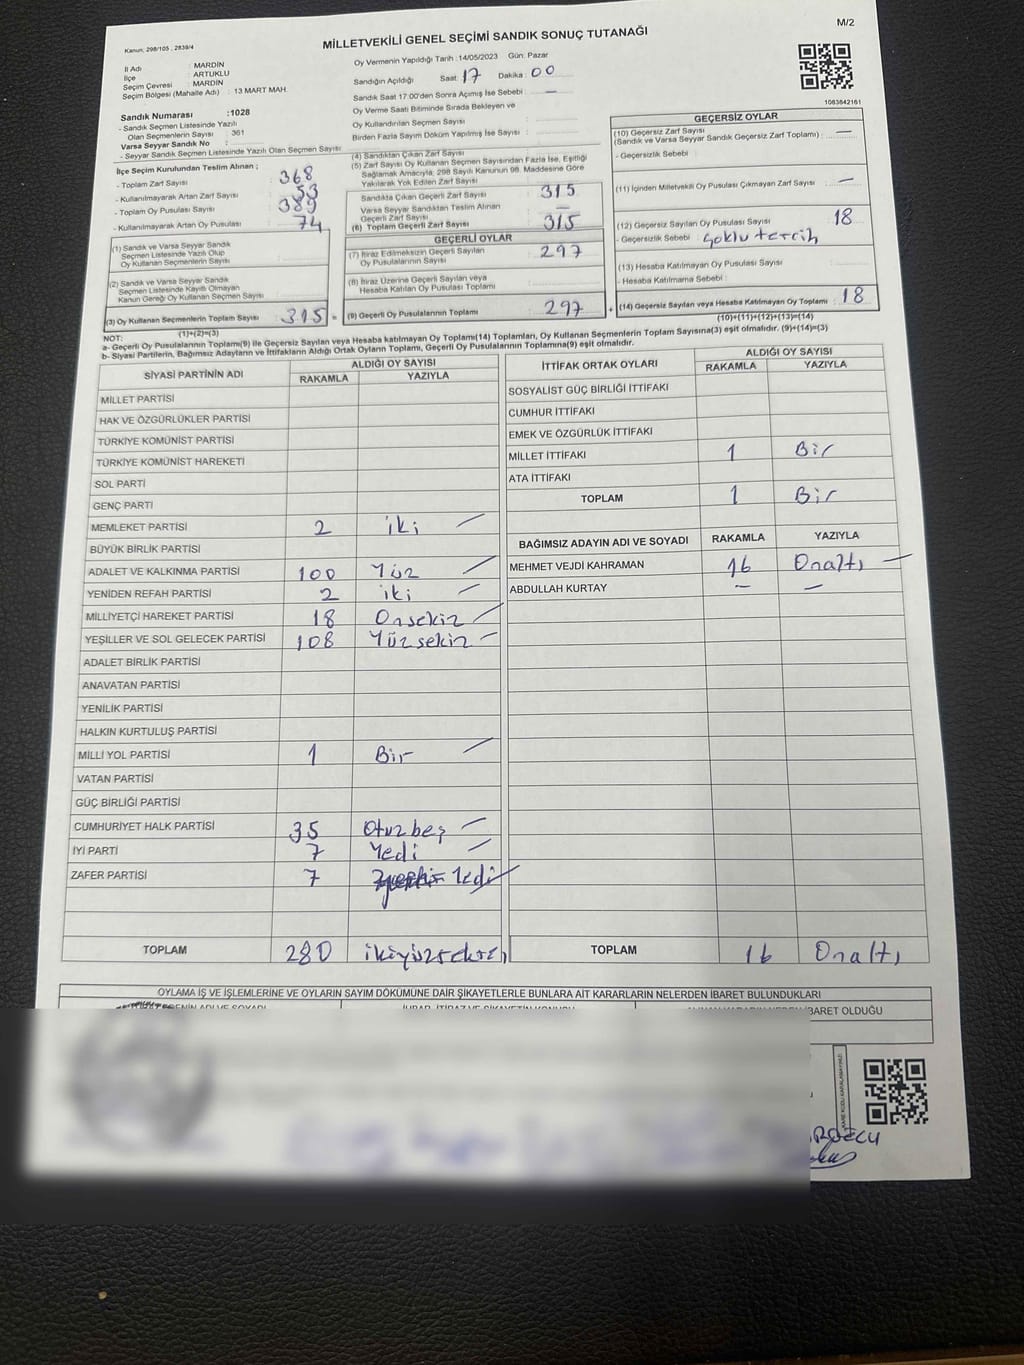 M/2
Kanun, 298/105 , 2839/4
MİLLETVEKİLİ GENEL SEÇİMİ SANDIK SONUÇ TUTANAĞI
1083642161
İl Adı : MARDİN
İlçe : ARTUKLU
Seçim Çevresi : MARDİN
Seçim Bölgesi (Mahalle Adı) : 13 MART MAH.
Sandık Numarası :1028
- Sandık Seçmen Listesinde Yazılı
Olan Seçmenlerin Sayısı : 361
Varsa Seyyar Sandık No :
- Seyyar Sandık Seçmen Listesinde Yazılı Olan Seçmen Sayısı :
Oy Vermenin Yapıldığı Tarih :14/05/2023 Gün: Pazar
Sandığın Açıldığı Saat: 17 Dakika : 00
Sandık Saat 17.00'den Sonra Açılmış İse Sebebi : —
Oy Verme Saati Bitiminde Sırada Bekleyen ve
Oy Kullandırılan Seçmen Sayısı :
Birden Fazla Sayım Döküm Yapılmış İse Sayısı :
İlçe Seçim Kurulundan Teslim Alınan ;
- Toplam Zarf Sayısı : 368
- Kullanılmayarak Artan Zarf Sayısı : 53
- Toplam Oy Pusulası Sayısı : 389
- Kullanılmayarak Artan Oy Pusulası : 74
(1) Sandık ve Varsa Seyyar Sandık
Seçmen Listesinde Yazılı Olup
Oy Kullanan Seçmenlerin Sayısı :
(2) Sandık ve Varsa Seyyar Sandık
Seçmen Listesinde Kayıtlı Olmayan
Kanun Gereği Oy Kullanan Seçmen Sayısı :
(3) Oy Kullanan Seçmenlerin Toplam Sayısı : 315 =
(1)+(2)=(3)
(4) Sandıktan Çıkan Zarf Sayısı :
(5) Zarf Sayısı Oy Kullanan Seçmen Sayısından Fazla İse, Eşitliği
Sağlamak Amacıyla, 298 Sayılı Kanunun 98. Maddesine Göre
Yakılarak Yok Edilen Zarf Sayısı :
Sandıkta Çıkan Geçerli Zarf Sayısı : 315
Varsa Seyyar Sandıktan Teslim Alınan
Geçerli Zarf Sayısı : —
(6) Toplam Geçerli Zarf Sayısı : 315
GEÇERLİ OYLAR
(7) İtiraz Edilmeksizin Geçerli Sayılan
Oy Pusulalarının Sayısı : 297
(8) İtiraz Üzerine Geçerli Sayılan veya
Hesaba Katılan Oy Pusulası Toplamı :
(9) Geçerli Oy Pusulalarının Toplamı : 297 +
GEÇERSİZ OYLAR
(10) Geçersiz Zarf Sayısı
(Sandık ve Varsa Seyyar Sandık Geçersiz Zarf Toplamı) : —
- Geçersizlik Sebebi :
(11) İçinden Milletvekili Oy Pusulası Çıkmayan Zarf Sayısı : —
(12) Geçersiz Sayılan Oy Pusulası Sayısı : 18
- Geçersizlik Sebebi : Çoklu tercih
(13) Hesaba Katılmayan Oy Pusulası Sayısı :
- Hesaba Katılmama Sebebi :
(14) Geçersiz Sayılan veya Hesaba Katılmayan Oy Toplamı : 18
(10)+(11)+(12)+(13)=(14)
NOT:
a- Geçerli Oy Pusulalarının Toplamı(9) ile Geçersiz Sayılan veya Hesaba katılmayan Oy Toplamı(14) Toplamları, Oy Kullanan Seçmenlerin Toplam Sayısına(3) eşit olmalıdır. (9)+(14)=(3)
b- Siyasi Partilerin, Bağımsız Adayların ve İttifakların Aldığı Ortak Oyların Toplamı, Geçerli Oy Pusulalarının Toplamına(9) eşit olmalıdır.
SİYASİ PARTİNİN ADI ALDIĞI OY SAYISI
RAKAMLA YAZIYLA
MİLLET PARTİSİ
HAK VE ÖZGÜRLÜKLER PARTİSİ
TÜRKİYE KOMÜNİST PARTİSİ
TÜRKİYE KOMÜNİST HAREKETİ
SOL PARTİ
GENÇ PARTİ
MEMLEKET PARTİSİ 2 iki
BÜYÜK BİRLİK PARTİSİ
ADALET VE KALKINMA PARTİSİ 100 Yüz
YENİDEN REFAH PARTİSİ 2 iki
MİLLİYETÇİ HAREKET PARTİSİ 18 Onsekiz
YEŞİLLER VE SOL GELECEK PARTİSİ 108 Yüzsekiz
ADALET BİRLİK PARTİSİ
ANAVATAN PARTİSİ
YENİLİK PARTİSİ
HALKIN KURTULUŞ PARTİSİ
MİLLİ YOL PARTİSİ 1 Bir
VATAN PARTİSİ
GÜÇ BİRLİĞİ PARTİSİ
CUMHURİYET HALK PARTİSİ 35 Otuzbeş
İYİ PARTİ 7 Yedi
ZAFER PARTİSİ 7 Yedi
TOPLAM 280 ikiyüzseksen
İTTİFAK ORTAK OYLARI ALDIĞI OY SAYISI
RAKAMLA YAZIYLA
SOSYALİST GÜÇ BİRLİĞİ İTTİFAKI
CUMHUR İTTİFAKI
EMEK VE ÖZGÜRLÜK İTTİFAKI
MİLLET İTTİFAKI 1 Bir
ATA İTTİFAKI
TOPLAM 1 Bir
BAĞIMSIZ ADAYIN ADI VE SOYADI RAKAMLA YAZIYLA
MEHMET VEJDİ KAHRAMAN 16 Onaltı
ABDULLAH KURTAY — —
TOPLAM 16 Onaltı
OYLAMA İŞ VE İŞLEMLERİNE VE OYLARIN SAYIM DÖKÜMÜNE DAİR ŞİKAYETLERLE BUNLARA AİT KARARLARIN NELERDEN İBARET BULUNDUKLARI
İBARET OLDUĞU